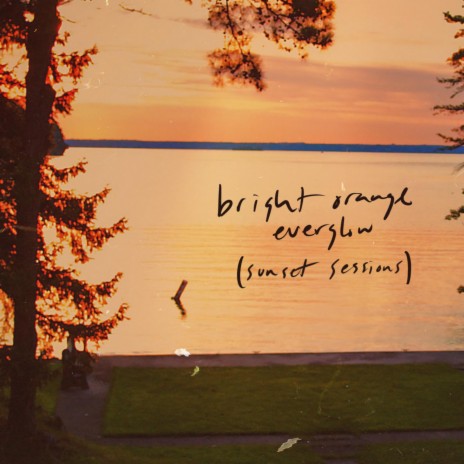 bright orange
everglow
(sunset sessions)